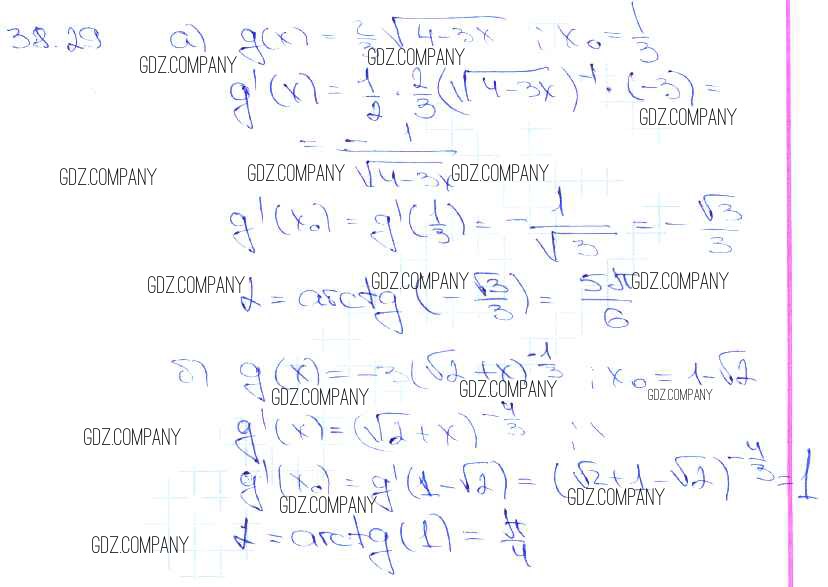 38.29 а) g(x) = 2/3 √(4-3x) ; x₀ = 1/3
GDZ.COMPANY GDZ.COMPANY
g'(x) = 1/2 · 2/3 (√(4-3x))⁻¹ · (-3) =
GDZ.COMPANY
= - 1/√(4-3x)
GDZ.COMPANY GDZ.COMPANY GDZ.COMPANY
g'(x₀) = g'(1/3) = - 1/√3 = - √3/3
GDZ.COMPANY GDZ.COMPANY GDZ.COMPANY
α = arctg (- √3/3) = 5π/6
б) g(x) = -3(√2 + x)^(-1/3) ; x₀ = 1-√2
GDZ.COMPANY GDZ.COMPANY GDZ.COMPANY
g'(x) = (√2 + x)^(-4/3) ;
GDZ.COMPANY
g'(x₀) = g'(1-√2) = (√2+1-√2)^(-4/3) = 1
GDZ.COMPANY GDZ.COMPANY
α = arctg(1) = π/4
GDZ.COMPANY